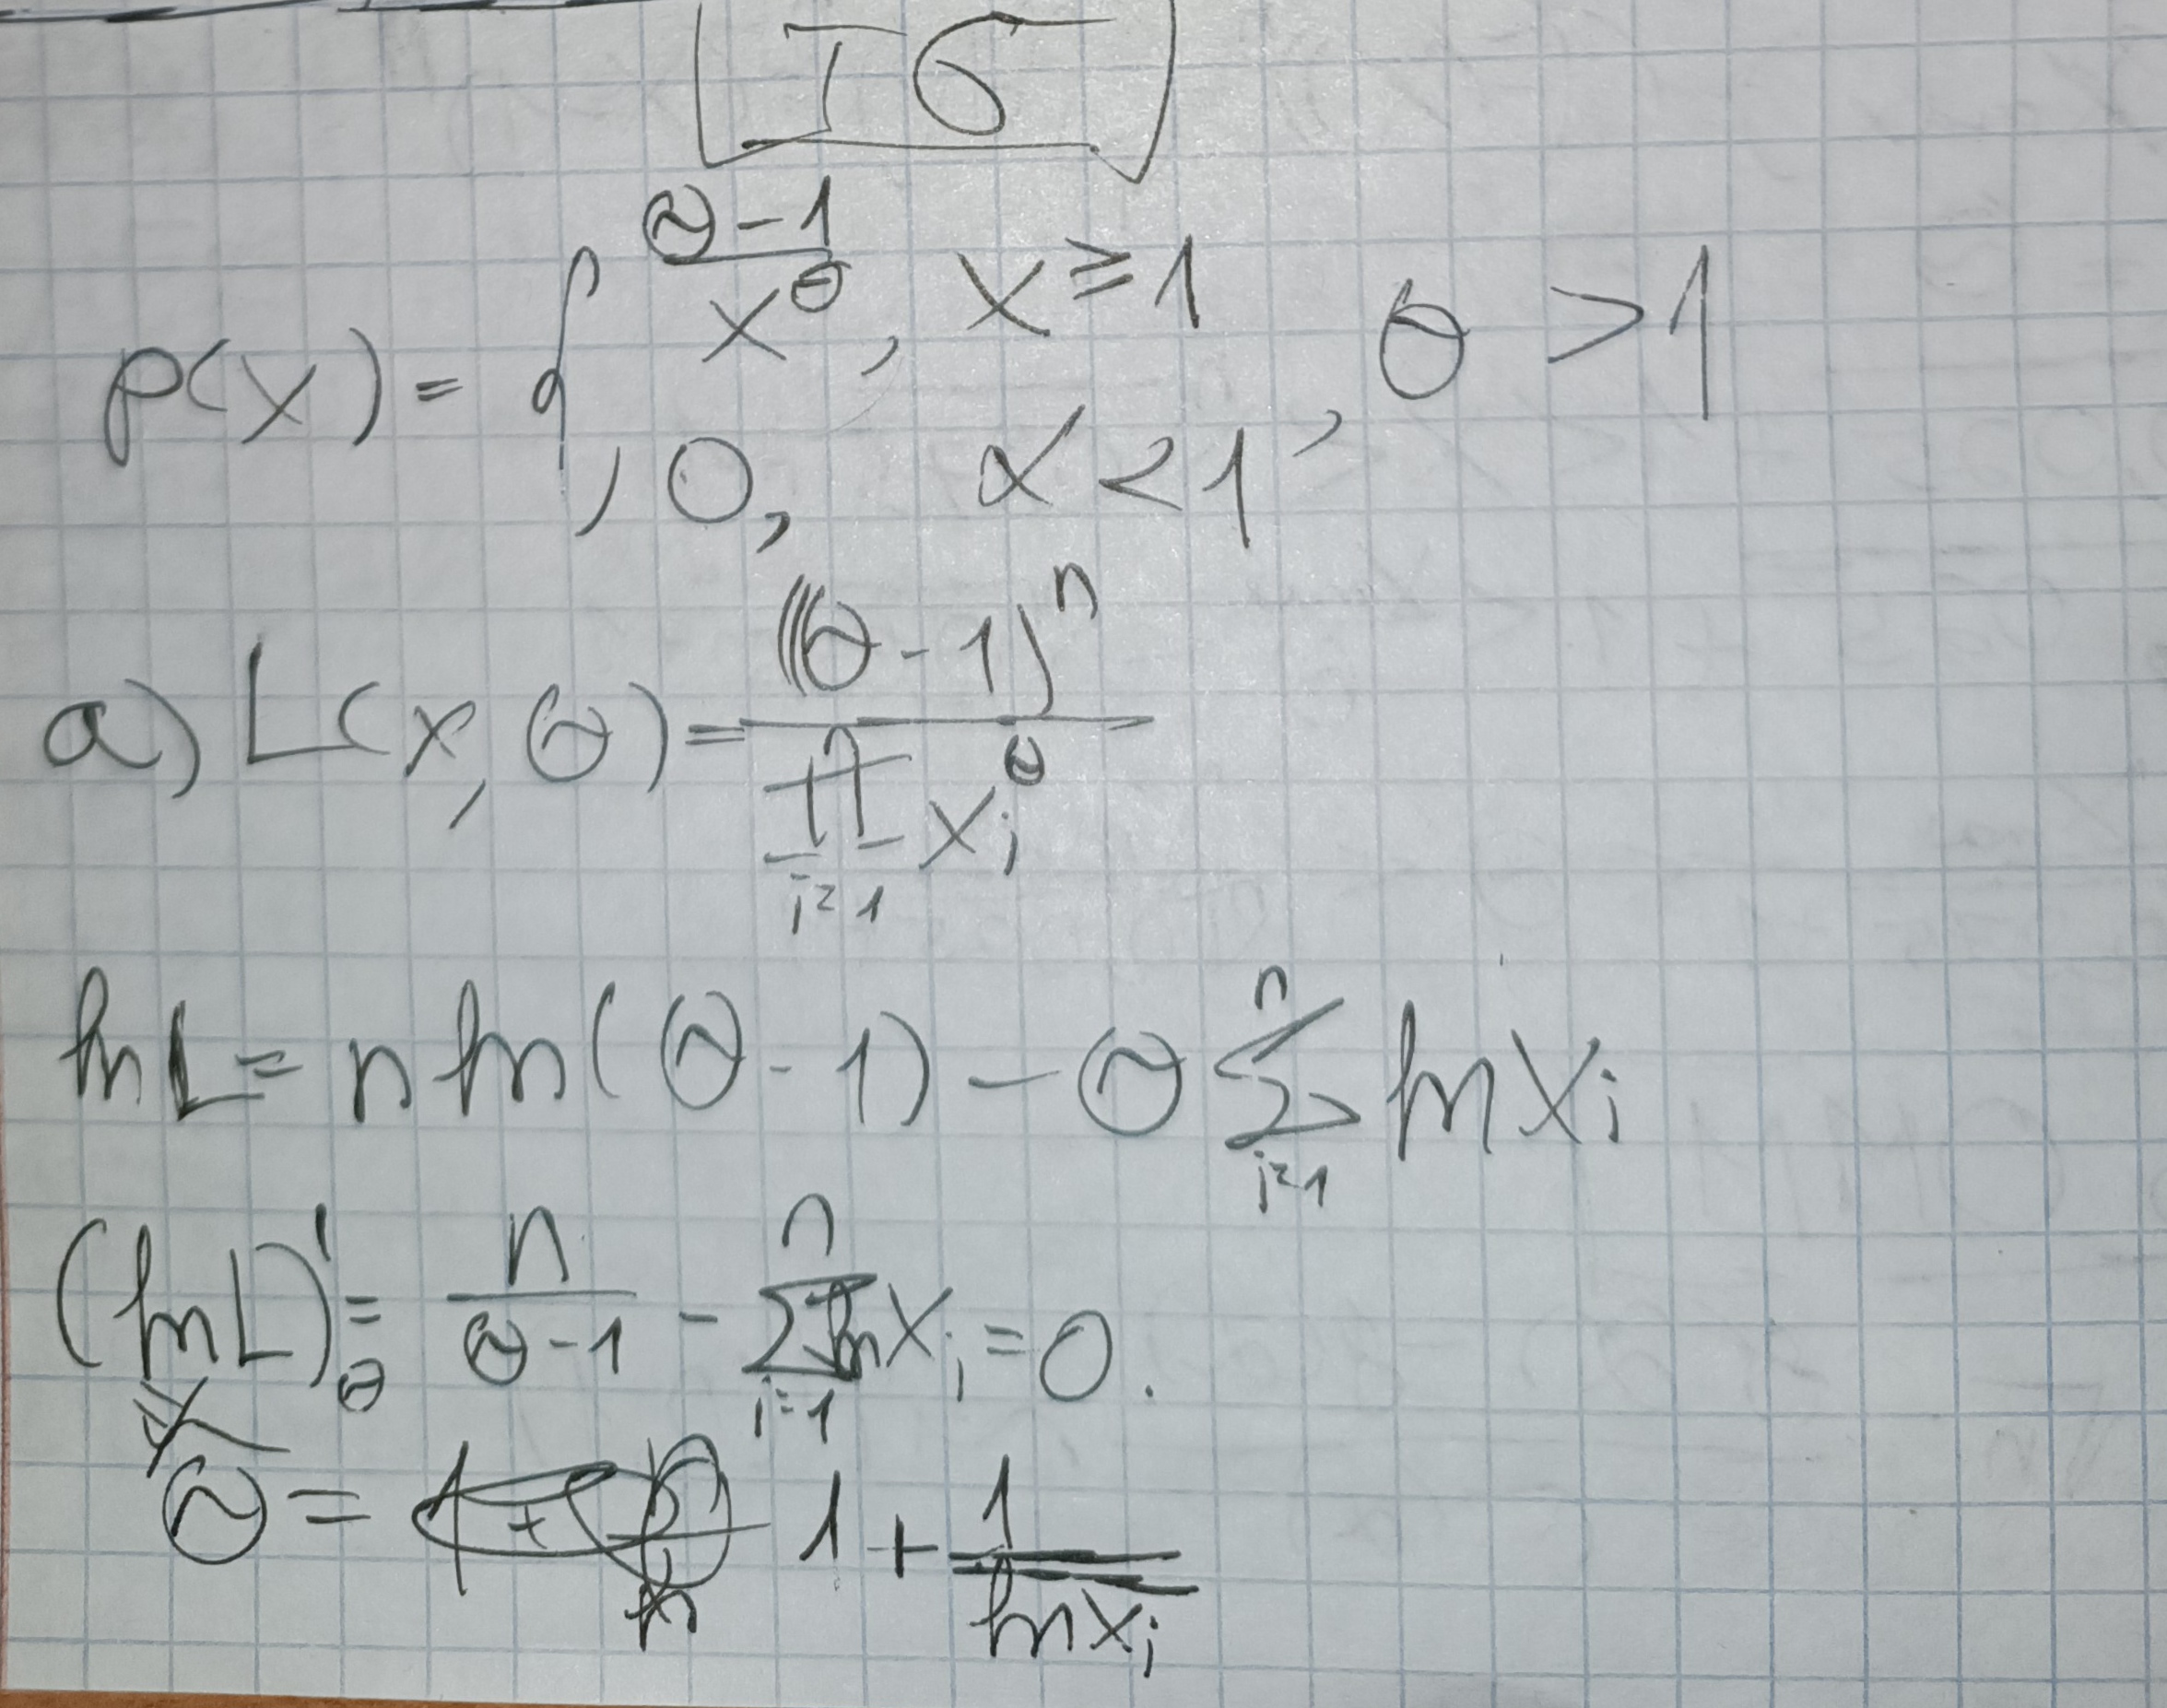 T6
p(x) = { (θ-1)/x^θ, x ≥ 1
, 0, x < 1 , θ > 1
a) L(x, θ) = (θ-1)^n / ∏_{i=1}^n x_i^θ
ln L = n ln(θ-1) - θ ∑_{i=1}^n ln x_i
(ln L)'_θ = n/(θ-1) - ∑_{i=1}^n ln x_i = 0.
θ = 1 + 1/\overline{\overline{ln x_i}}